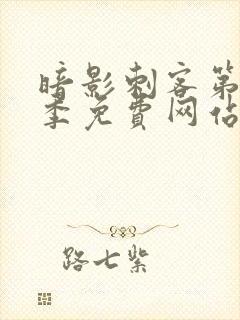 暗影刺客第
季免费网站
路七紫